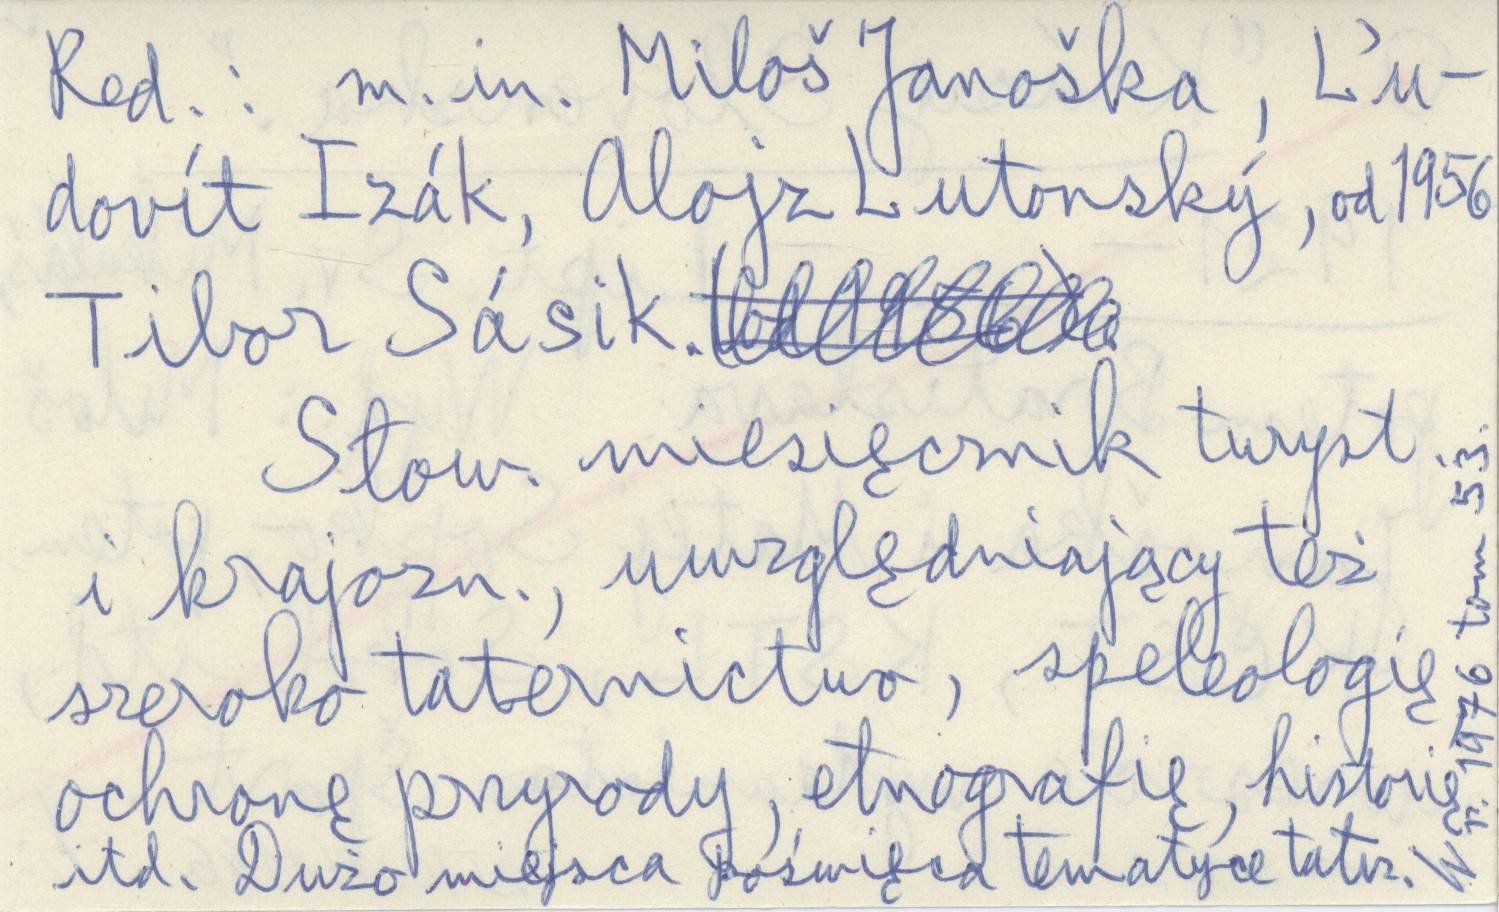 Red.: m.in. Miloš Janoška, Ľu-
dovít Izák, Alojz Lutonský, od 1956
Tibor Sásik.
Słow. miesięcznik turyst.
i krajozn., uwzględniający też
szeroko taternictwo, speleologię
ochronę przyrody, etnografię, historię
itd. Dużo miejsca poświęca tematyce tatrz.
W r. 1976 tom 53.